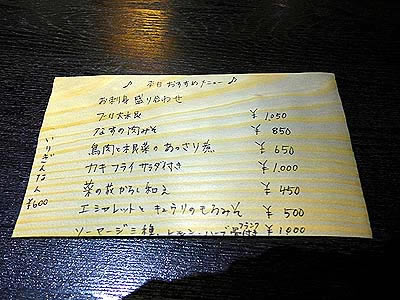 ♪ 本日おすすめメニュー ♪
お刺身盛り合わせ
ブリ大根 ¥1,050
なすの肉みそ ¥850
鳥肉と根菜のあっさり煮 ¥650
カキフライサラダ付き ¥1,000
菜の花からし和え ¥450
エシャレットとキュウリのもろみそ ¥500
ソーセージ三種 フランク ¥1,000
いりぎんなん ¥600